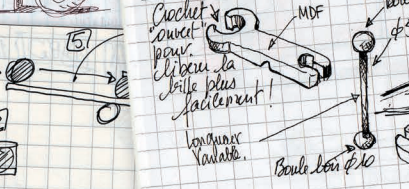 5
Crochet
"ouvert"
pour
libérer la
bille plus
facilement !
MDF
Longueur
Variable.
Boule bois ϕ10